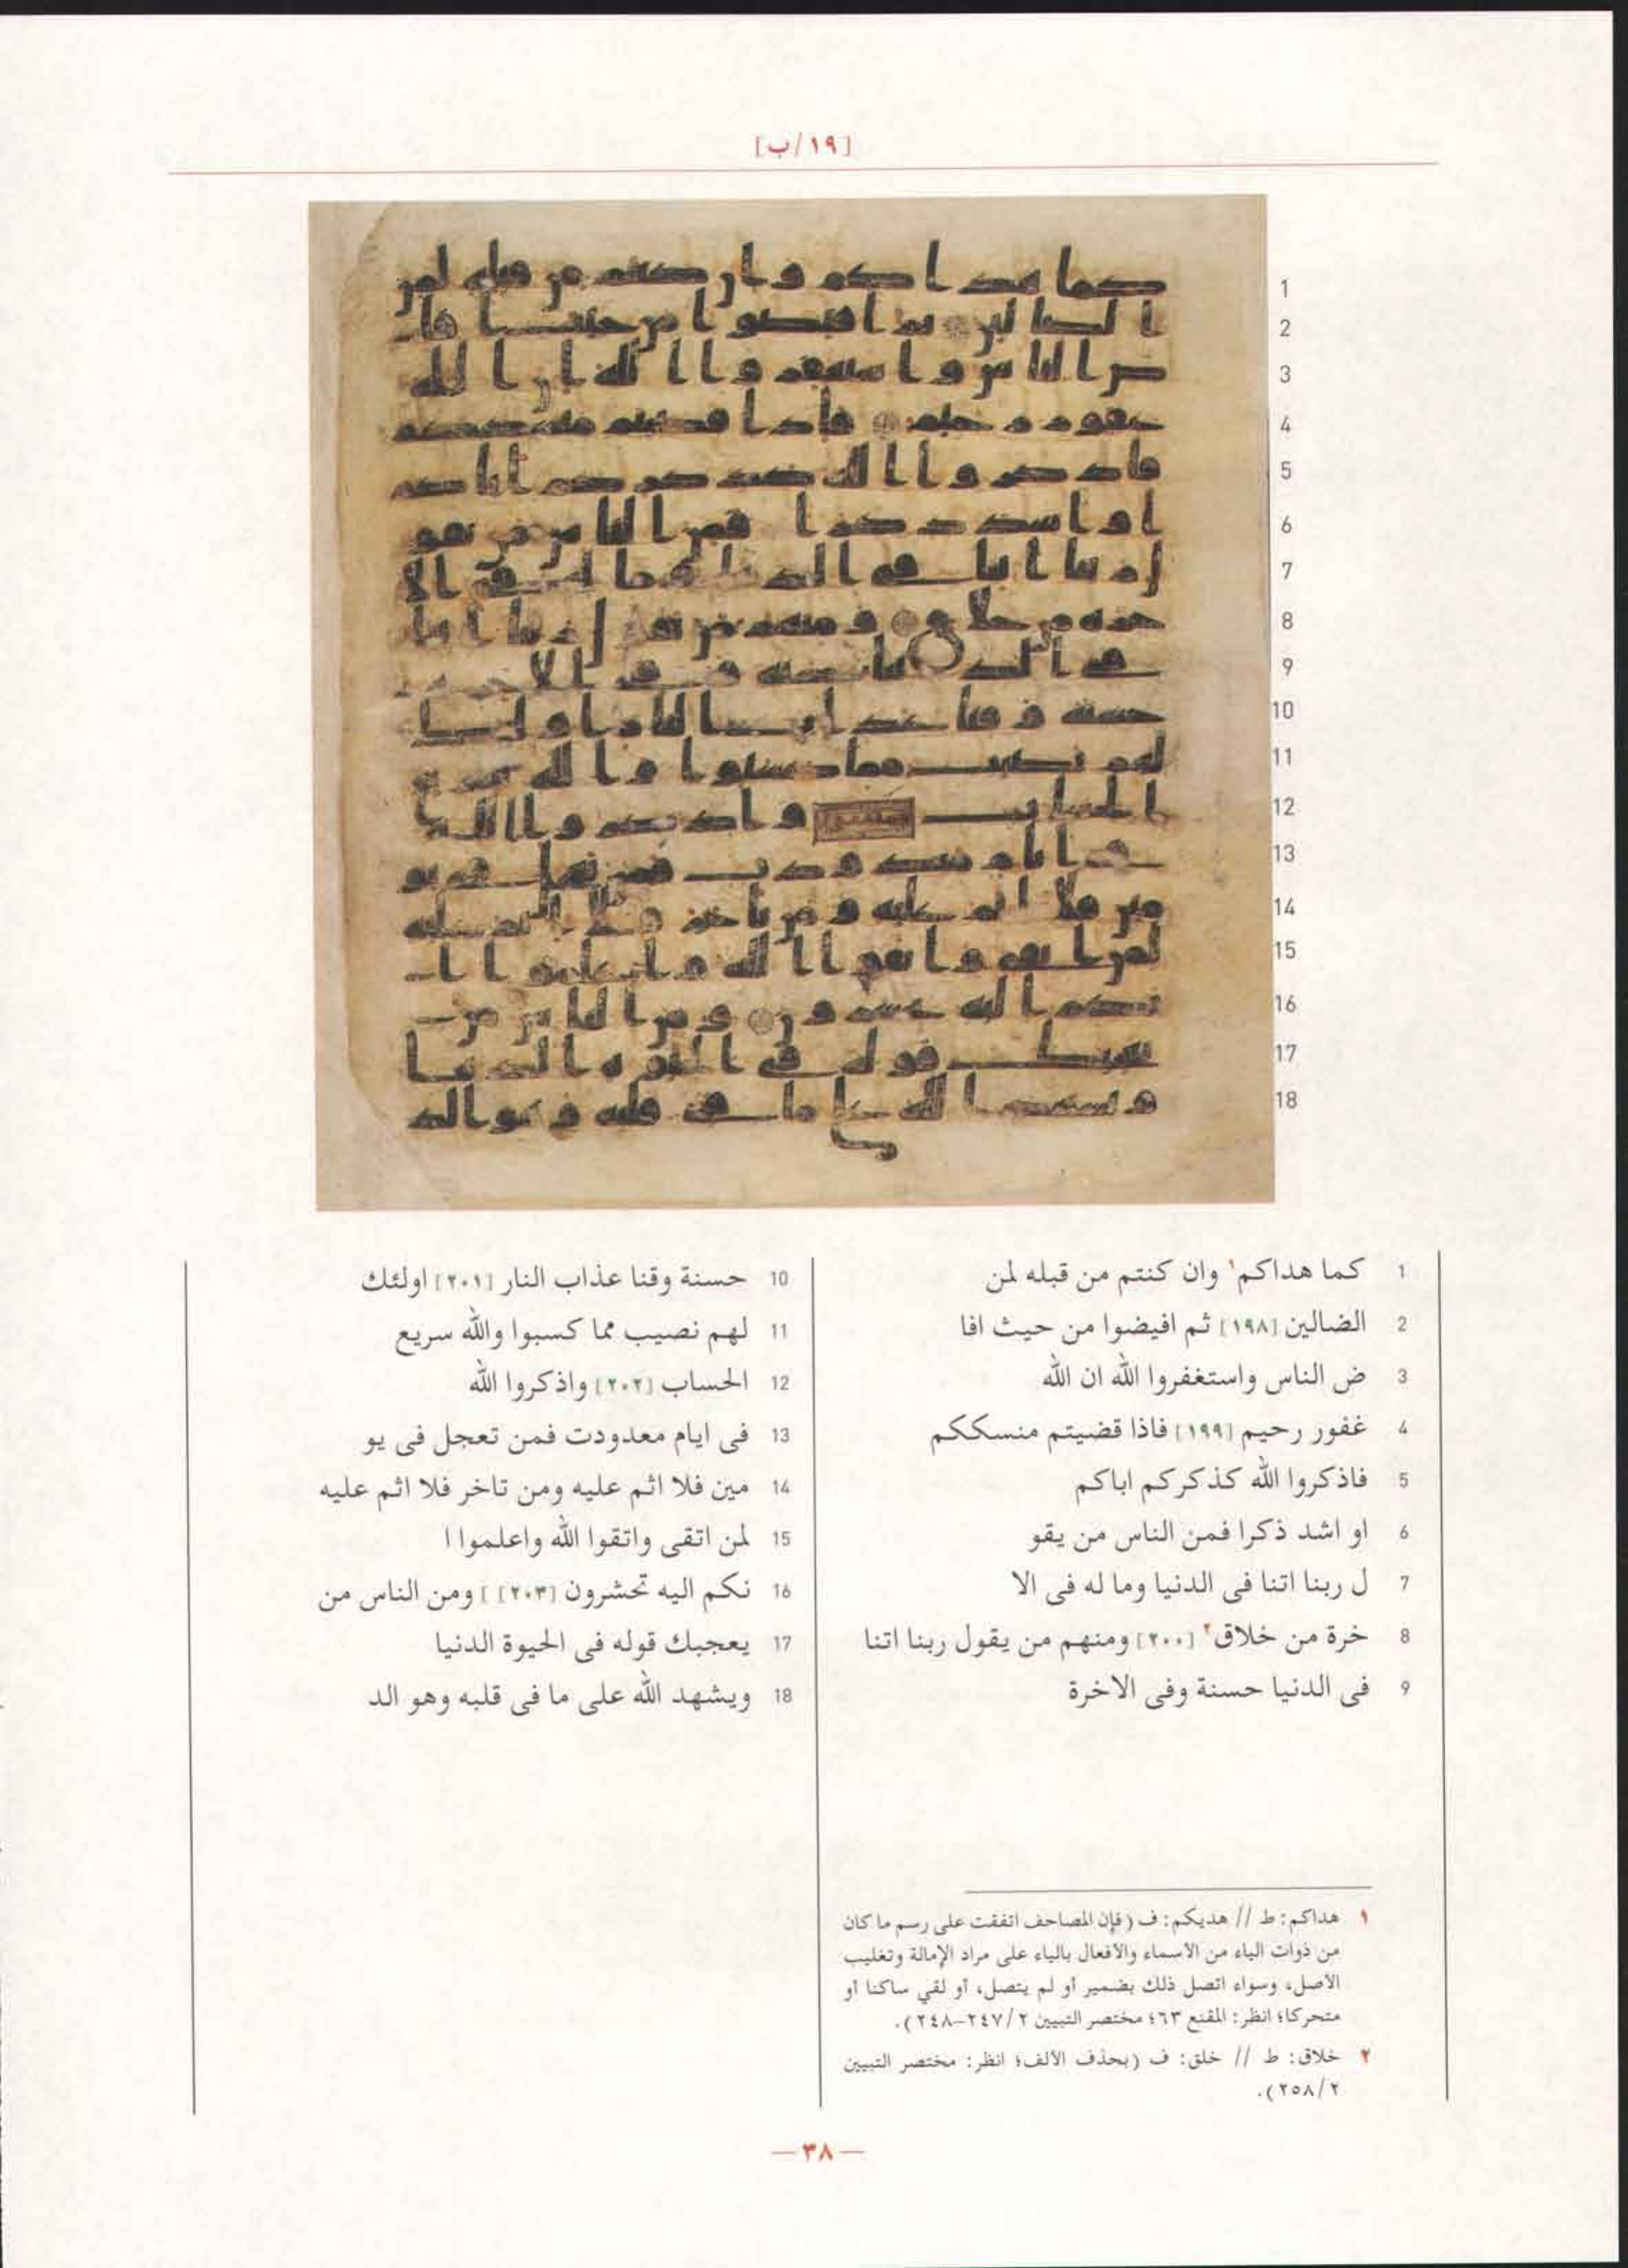 [١٩/ب]
1 كما هداكم١ وان كنتم من قبله لمن
2 الضالين [١٩٨] ثم افيضوا من حيث افا
3 ض الناس واستغفروا الله ان الله
4 غفور رحيم [١٩٩] فاذا قضيتم منسككم
5 فاذكروا الله كذكركم اباكم
6 او اشد ذكرا فمن الناس من يقو
7 ل ربنا اتنا فى الدنيا وما له فى الا
8 خرة من خلاق٢ [٢٠٠] ومنهم من يقول ربنا اتنا
9 فى الدنيا حسنة وفى الاخرة
10 حسنة وقنا عذاب النار [٢٠١] اولئك
11 لهم نصيب مما كسبوا والله سريع
12 الحساب [٢٠٢] واذكروا الله
13 فى ايام معدودت فمن تعجل فى يو
14 مين فلا اثم عليه ومن تاخر فلا اثم عليه
15 لمن اتقى واتقوا الله واعلموا ا
16 نكم اليه تحشرون [٢٠٣] ] ومن الناس من
17 يعجبك قوله فى الحيوة الدنيا
18 ويشهد الله على ما فى قلبه وهو الد
١ هداكم: ط // هديكم: ف (فإن المصاحف اتفقت على رسم ما كان
من ذوات الياء من الأسماء والأفعال بالياء على مراد الإمالة وتغليب
الأصل، وسواء اتصل ذلك بضمير أو لم يتصل، أو لقي ساكنا أو
متحركا؛ انظر: المقنع ٦٣؛ مختصر التبيين ٢/ ٢٤٧-٢٤٨).
٢ خلاق: ط // خلق: ف (بحذف الألف؛ انظر: مختصر التبيين
٢/ ٢٥٨).
— ٣٨ —